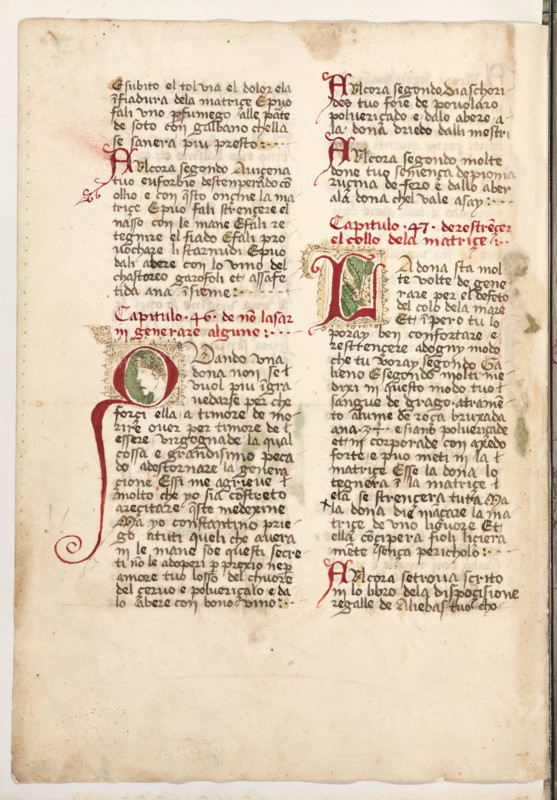 E subito el tol via el dolor ela
ĩfiadura dela matrice E puo
fali uno ꝑfumego alle parte
de soto con galbano chella
se sanera piu presto:
Ancora segondo Auicena
tuo euforbio destemperado cõ
olio e con q̃sto onçine la ma
trice E puo fali strençere el
nasso con le mane E fali re
tegnire el fiado E fali pro
vochare li starnudi E puo
dali abere con lo vino del
chastoreo garofoli et assafe
tida ana ĩsieme:
Capitulo ·46· de nõ lasar
ni generare alguna:
Quando una
dona non se ł
vuol piu ĩgra
vedarse per che
forçi ella a timore de mo
rire over per timore de ł
essere virgognade la qual
cossa e grandisimo peca
do adestornare la genera
cione Essi me agrieve ł
ãmolto che yo sia costreto
arecitare q̃ste medexine
Ma yo constantino prie
go atuti queli che avera
in le mane soe questi secre
ti nõ le adoperi ꝑ prexio ne ꝑ
amore tuo losso del chuore
del cervo e polueriçalo e da
lo abere con bono vino:
Ancora segondo diaschori
des tuo foie de povolaro
polueriçado e dalo abere a
la dona driedo dalli mestri
Ancora segondo molte
done tuo semença de pionia
ruçina de fero e dallo aber
ala dona chel vale asay:
Capitulo ·47· de restrẽçer
el collo dela matrice:
La dona sta mol
te volte de gene
rare per el defeto
del colo dela mare
Et ĩpero tu lo
poray ben confortare e
restrençere adogny modo
che tu voray segondo Ga
lieno E segondo molti me
dixi in questo modo tuo ł
sangue de drago atramẽ
to alume de roca bruxada
ana ʒ·4· e siano polueriçade
et ĩcorporade con axedo
forte e puo meti in la ł
matrice Esse la dona lo
tegnera ĩ la matrice ł
ela se strençera tuta Ma
la dona die ĩnaçare la ma
trice de uno liquore Et
ella cõcipera fioli liciera
mẽte sença pericholo:
Ancora se trova scrito
in lo libro dela disposicione
regalle de Aliebas tuo cho